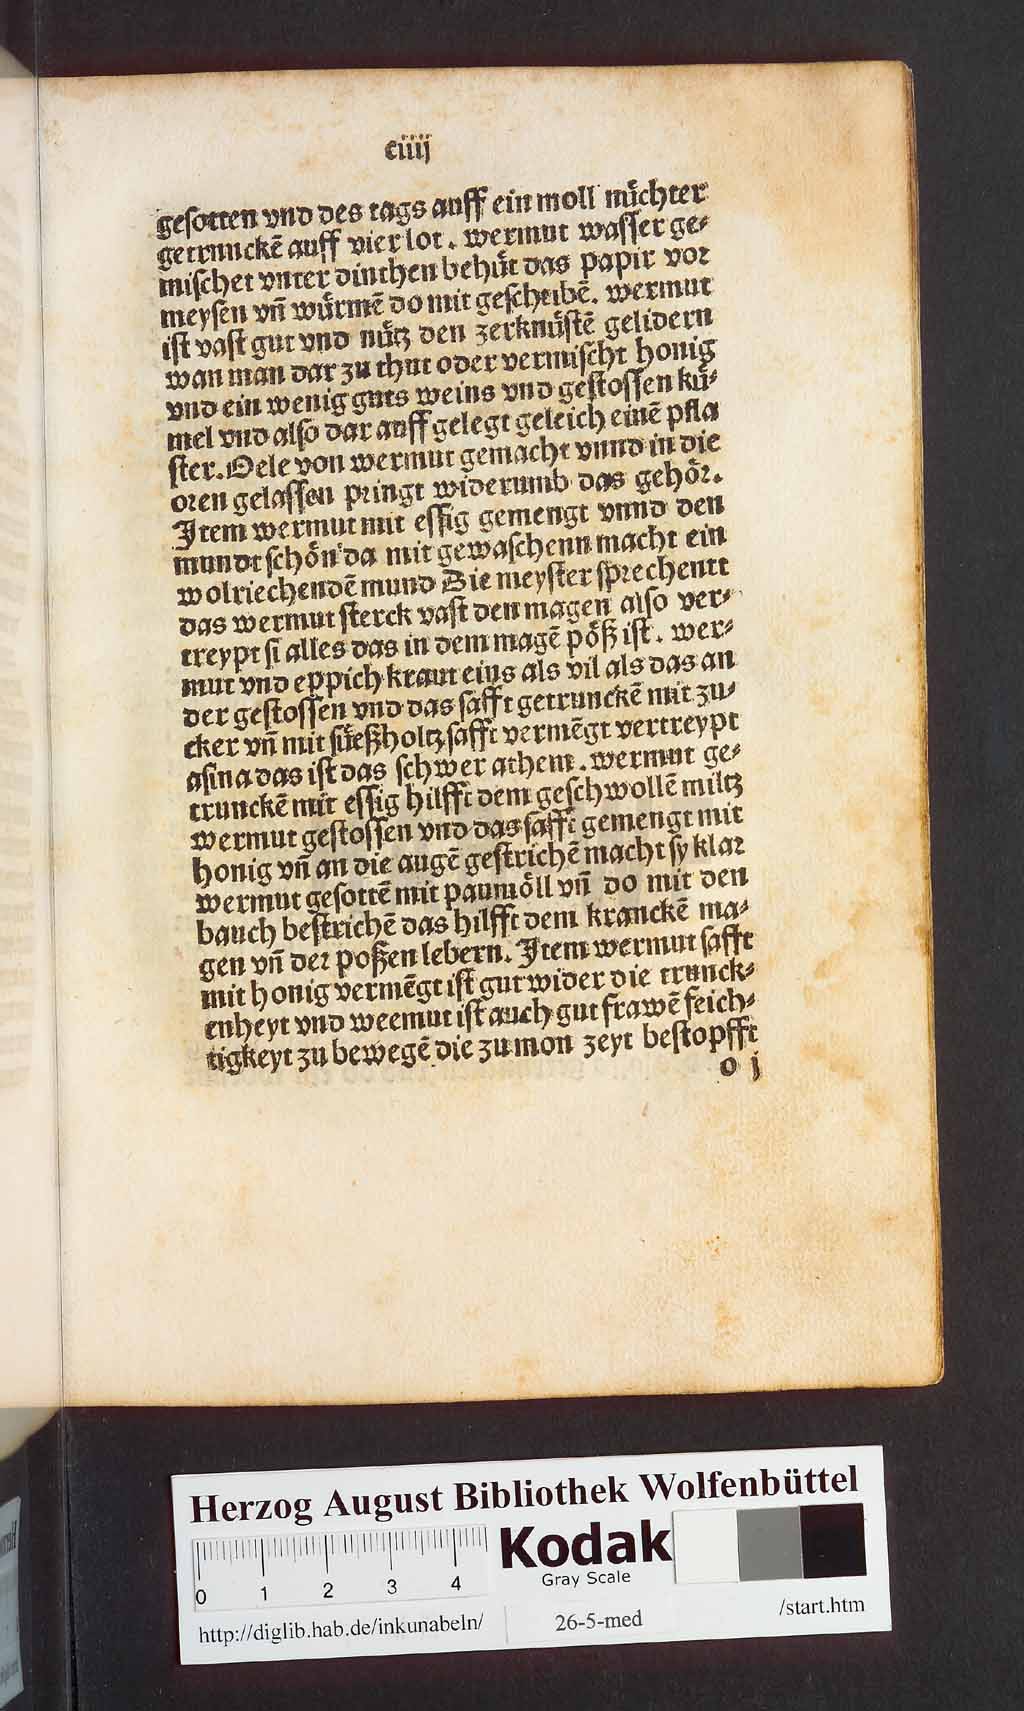 ciiij
gesotten vnd des tags auff ein moll nüchter
getrunckē auff vier lot. wermut wasser ge⸗
mischet vnter dinthen behüt das papir vor
meysen vn̄ würmē do mit geschribē. wermut
ist vast gut vnd nütz den zerknüstē gelidern
wan man dar zu thut oder vermischt honig
vnd ein wenig guts weins vnd gestossen kü⸗
mel vnd also dar auff gelegt geleich einē pfla
ster. Oele von wermut gemacht vnnd in die
oren gelassen pringt widerumb das gehör.
Item wermut mit essig gemengt vnnd den
mundt schön da mit gewaschenn macht ein
wolriechendē mund Die meyster sprechentt
das wermut sterck vast den magen also ver⸗
treypt si alles das in dem magē pöß ist. wer⸗
mut vnd eppich kraut eins als vil als das an
der gestossen vnd das safft getrunckē mit zu⸗
cker vn̄ mit süeßholtz safft vermēgt vertreypt
asina das ist das schwer athem. wermut ge⸗
trunckē mit essig hilfft dem geschwollē miltz
wermut gestossen vnd das safft gemengt mit
honig vn̄ an die augē gestrichē macht sy klar
wermut gesottē mit paumöll vn̄ do mit den
bauch bestrichē das hilfft dem kranckē ma⸗
gen vn̄ der poßen lebern. Item wermut safft
mit honig vermēgt ist gut wider die trunck⸗
enheyt vnd weemut ist auch gut frawē feich⸗
tigkeyt zu bewegē die zu mon zeyt bestopfft
o j
Herzog August Bibliothek Wolfenbüttel
0 1 2 3 4
Kodak
Gray Scale
http://diglib.hab.de/inkunabeln/
26-5-med
/start.htm